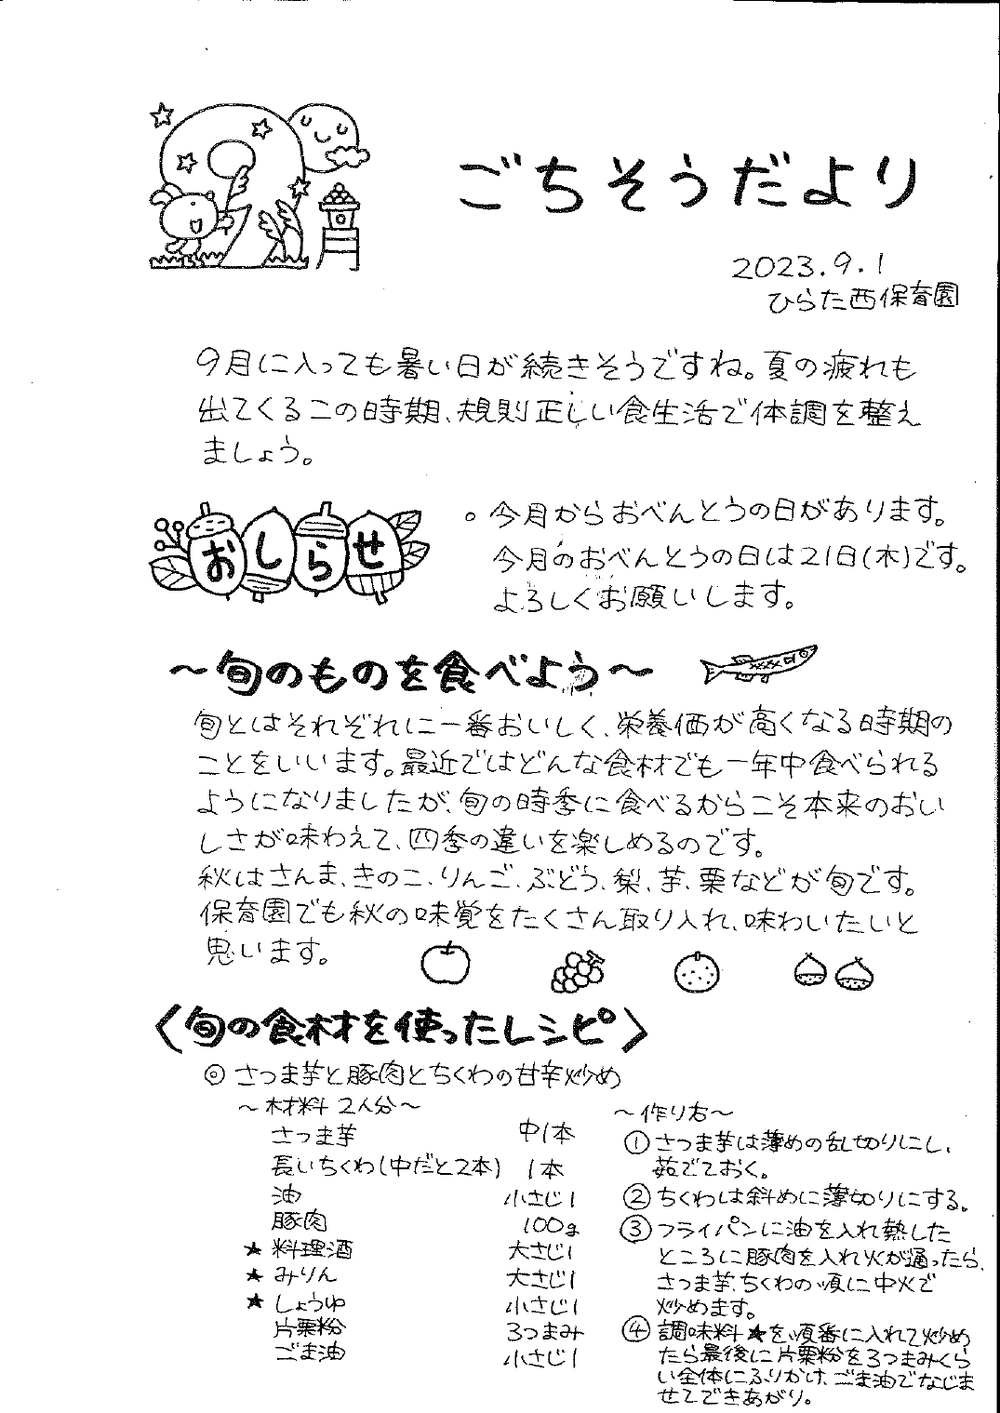 9月
ごちそうだより
2023.9.1
ひらた西保育園
9月に入っても暑い日が続きそうですね。夏の疲れも
出てくるこの時期、規則正しい食生活で体調を整え
ましょう。
おしらせ
○ 今月からおべんとうの日があります。
今月のおべんとうの日は21日(木)です。
よろしくお願いします。
～旬のものを食べよう～
旬とはそれぞれに一番おいしく、栄養価が高くなる時期の
ことをいいます。最近ではどんな食材でも一年中食べられる
ようになりましたが、旬の時季に食べるからこそ本来のおい
しさが味わえて、四季の違いを楽しめるのです。
秋はさんま、きのこ、りんご、ぶどう、梨、芋、栗などが旬です。
保育園でも秋の味覚をたくさん取り入れ、味わいたいと
思います。
〈旬の食材を使ったレシピ〉
◎ さつま芋と豚肉とちくわの甘辛炒め
～材料 2人分～
さつま芋 中1本
長いちくわ(中だと2本) 1本
油 小さじ1
豚肉 100g
★ 料理酒 大さじ1
★ みりん 大さじ1
★ しょうゆ 小さじ1
片栗粉 3つまみ
ごま油 小さじ1
～作り方～
① さつま芋は薄めの乱切りにし、
茹でておく。
② ちくわは斜めに薄切りにする。
③ フライパンに油を入れ熱した
ところに豚肉を入れ火が通ったら、
さつま芋、ちくわの順に中火で
炒めます。
④ 調味料★を順番に入れて炒め
たら最後に片栗粉を3つまみくら
い全体にふりかけ、ごま油でなじま
せてできあがり。